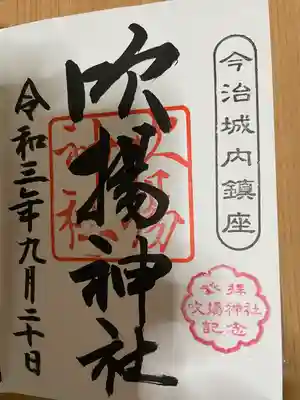 今治城内鎮座
吹揚神社
吹揚神社
参拝
吹揚神社
記念
令和三年九月二十日